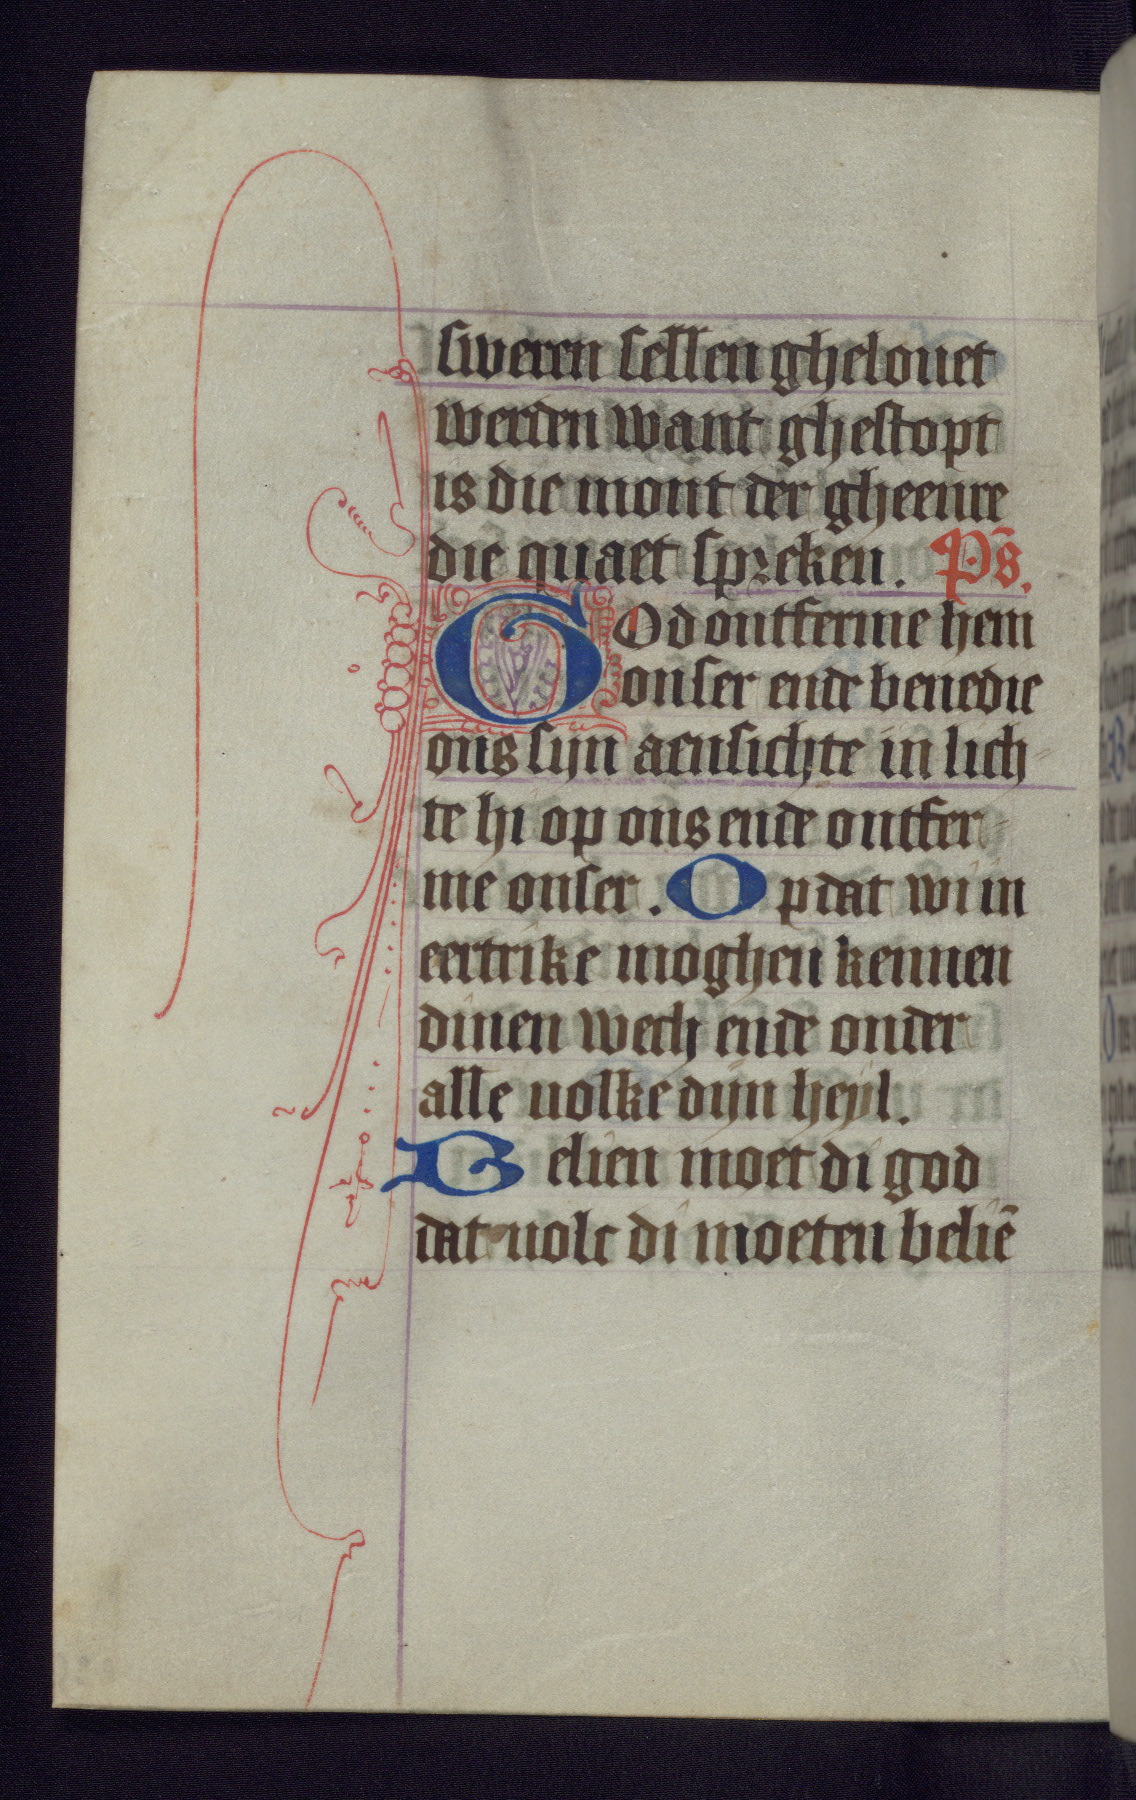 sweren sellen ghelouet
werden want ghestopt
is die mont der gheenre
die quaet spreken. Ps̄.
God ontferme hem
onser ende benedie
ons sijn aensichte in lich
te hi op ons ende ontfer
me onser. Opdat wi in
eertrike moghen kennen
dinen wech ende onder
alle uolke dijn heyl.
Belien moet di god
dat uolc di moeten beliē